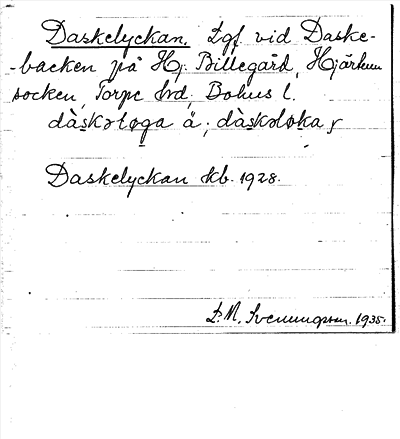 Daskelyckan. Lgf. vid Daske-
-backen på Hj. Billegård, Hjärtum
socken, Torpe hrd, Bohus l.
dàskəloga å; dàskəloka,
Daskelyckan kb. 1928.
L. M. Svenungsson. 1935.